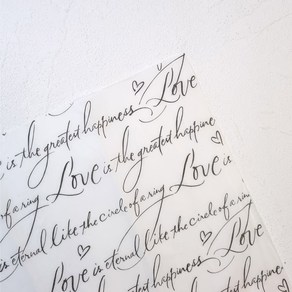 Love
is the greatest happiness Love
e is the greatest happiness Love is the greatest happine
of a ring Love is eternal like the circle of a ring Love is
is eternal like the circle of a ring
Love is the greatest happiness Love